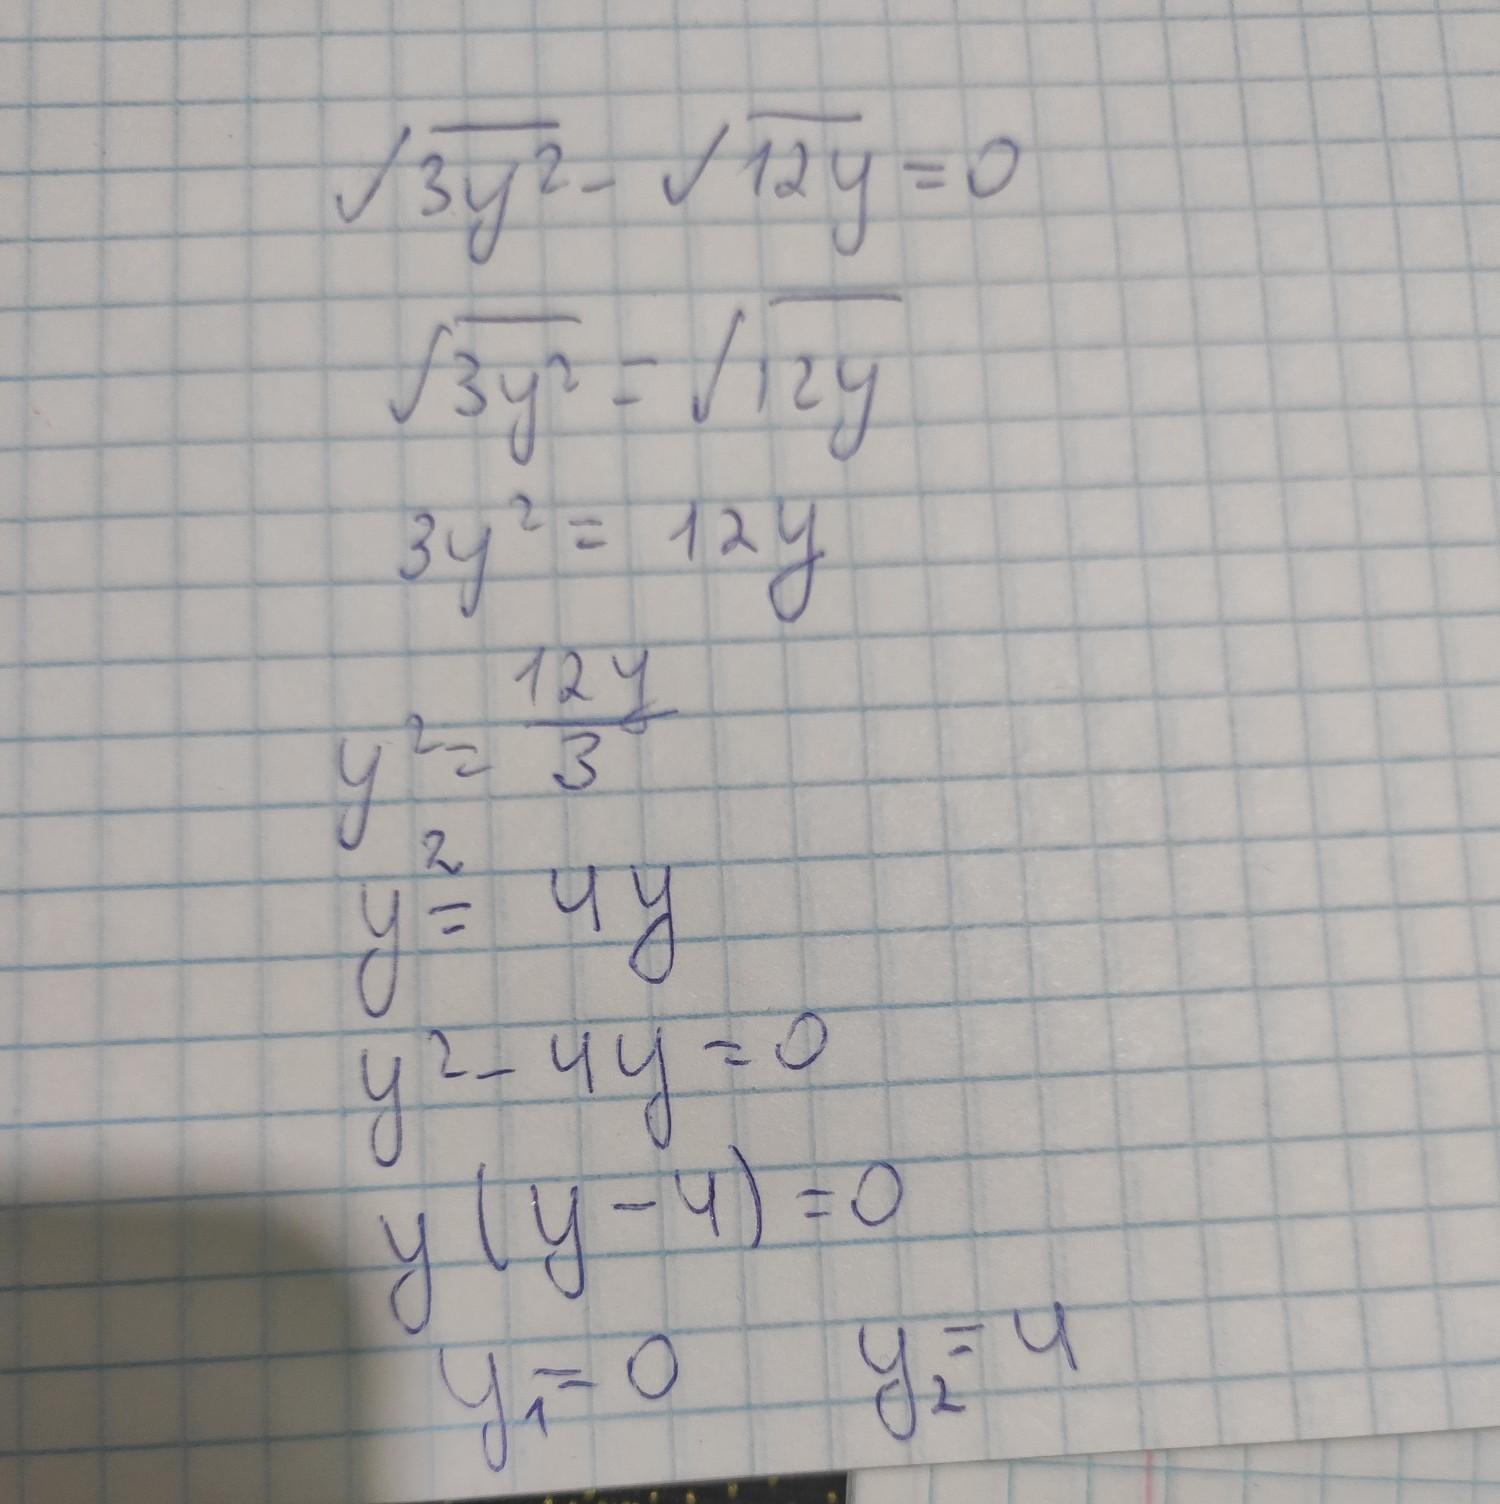 √3y² - √12y = 0
√3y² = √12y
3y² = 12y
y² = 12y/3
y² = 4y
y² - 4y = 0
y(y - 4) = 0
y₁ = 0 y₂ = 4